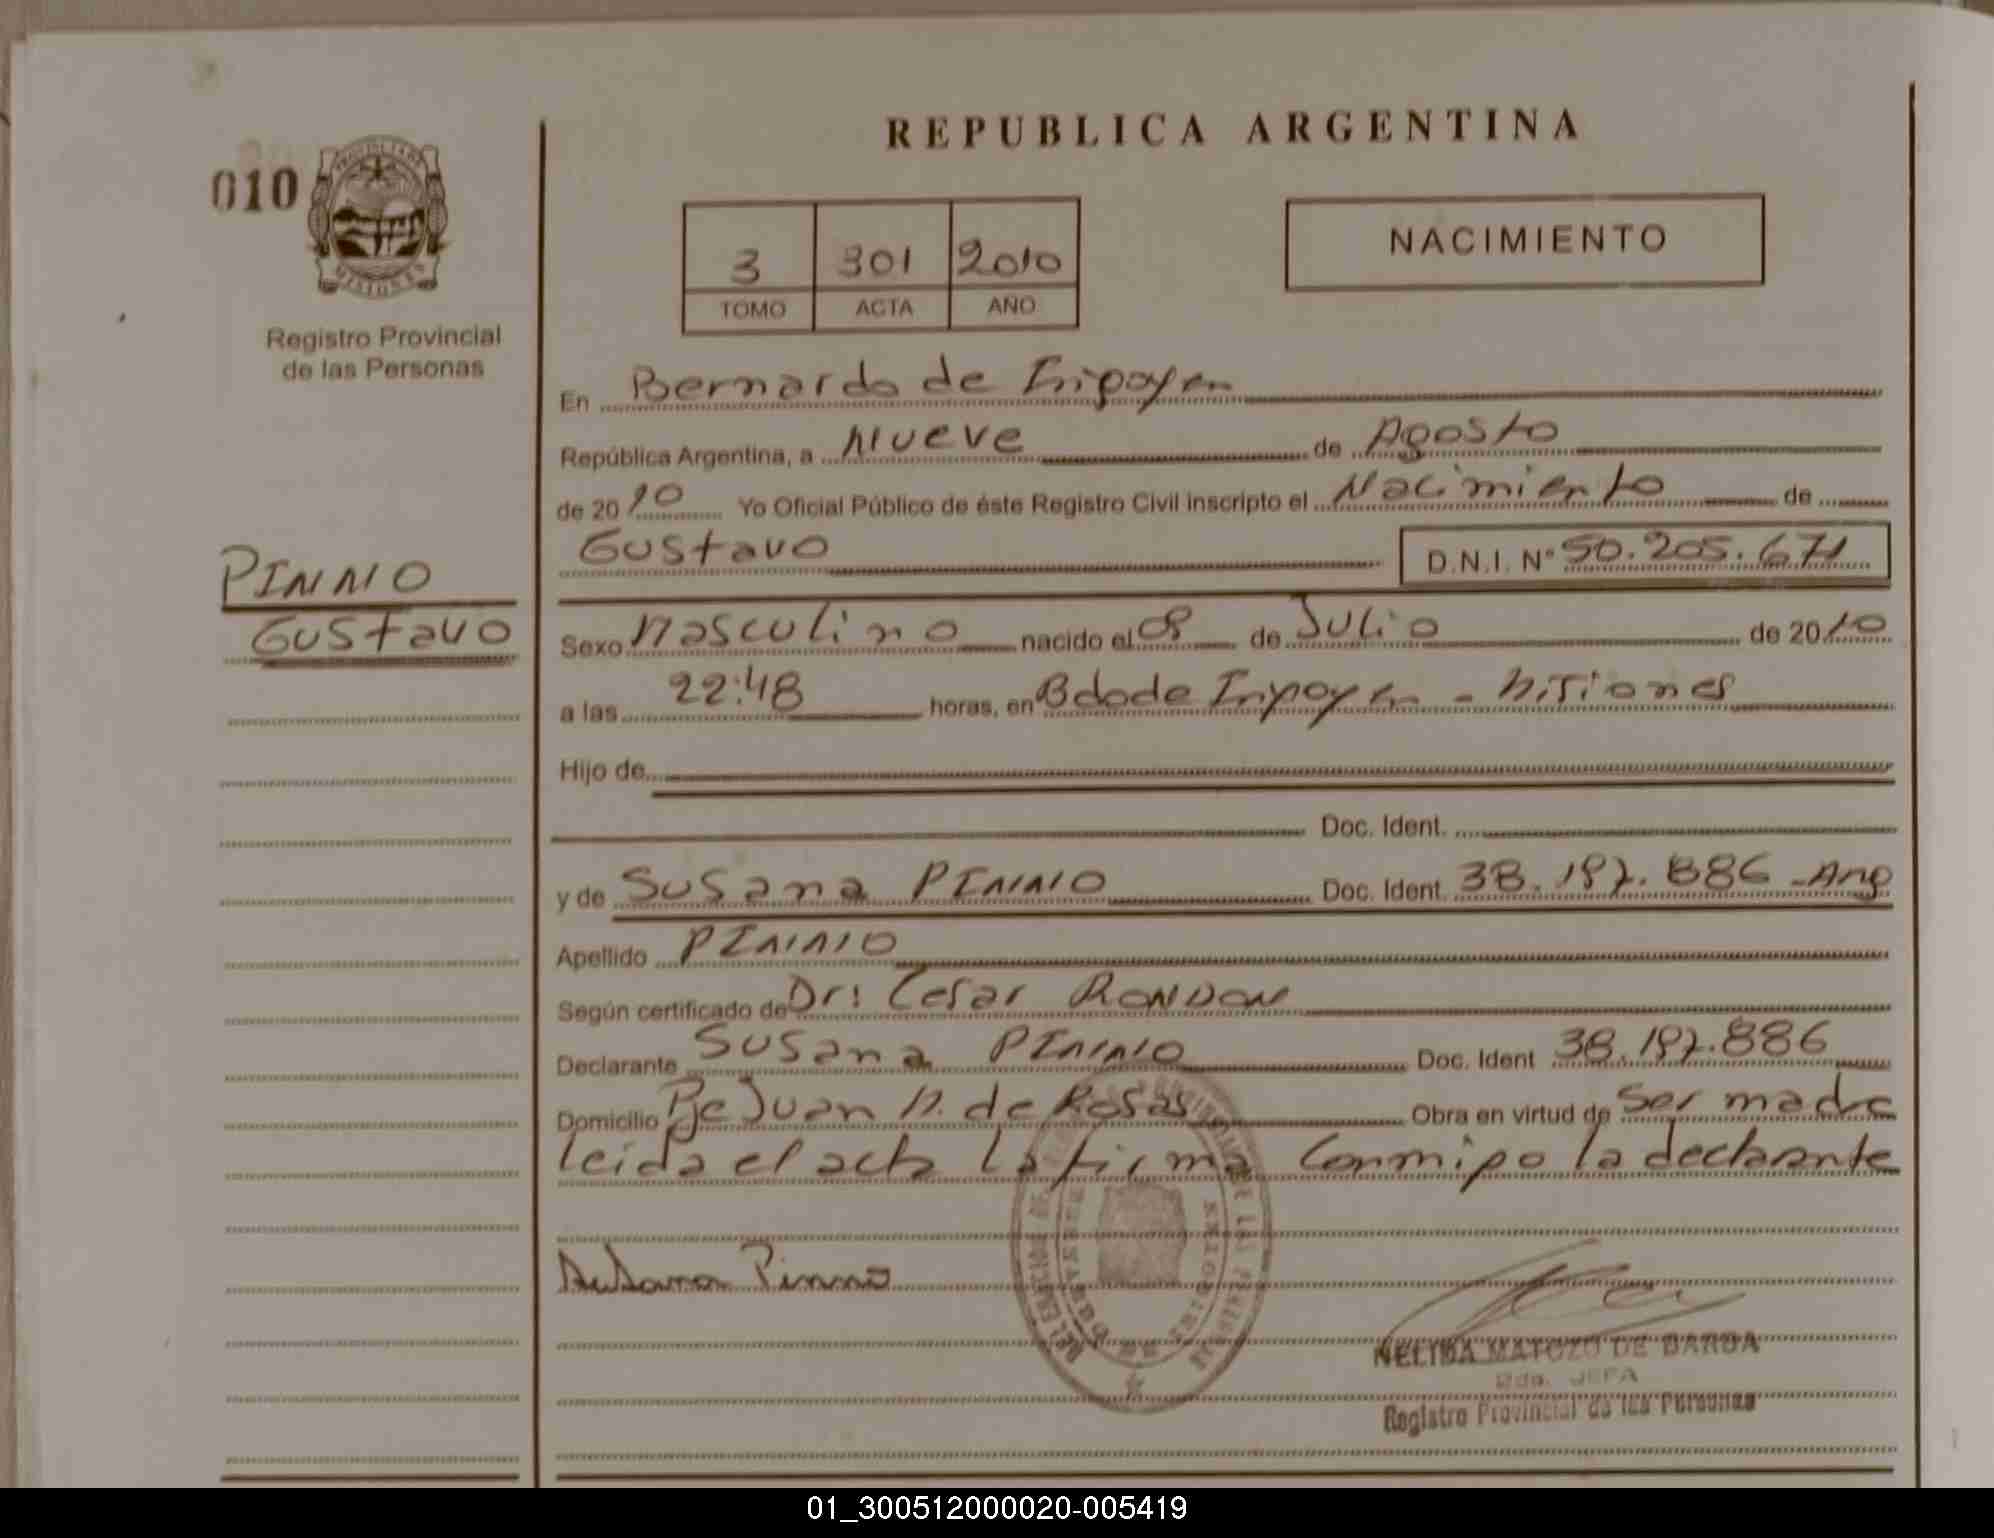 REPUBLICA ARGENTINA
010
PROVINCIA DE
MISIONES
Registro Provincial
de las Personas
3 301 2010
TOMO ACTA AÑO
NACIMIENTO
En Bernardo de Irigoyen
República Argentina, a Nueve de Agosto
de 2010 Yo Oficial Público de éste Registro Civil inscripto el Nacimiento de
Gustavo D.N.I. N° 50.205.671
PINNO
Gustavo
Sexo Masculino nacido el 08 de Julio de 2010
a las 22:48 horas, en Bdo de Irigoyen - Misiones
Hijo de
Doc. Ident.
y de Susana PINNO Doc. Ident. 38.197.886 - Arg
Apellido PINNO
Según certificado de Dr: Cesar RONDON
Declarante Susana PINNO Doc. Ident 38.197.886
Domicilio Pje Juan M. de Rosas Obra en virtud de Ser madre
leida el acta la firma Conmigo la declarante
Susana Pinno
NELIDA MATOZO DE
JEFA
Registro Provincial de las Personas
01_300512000020-005419